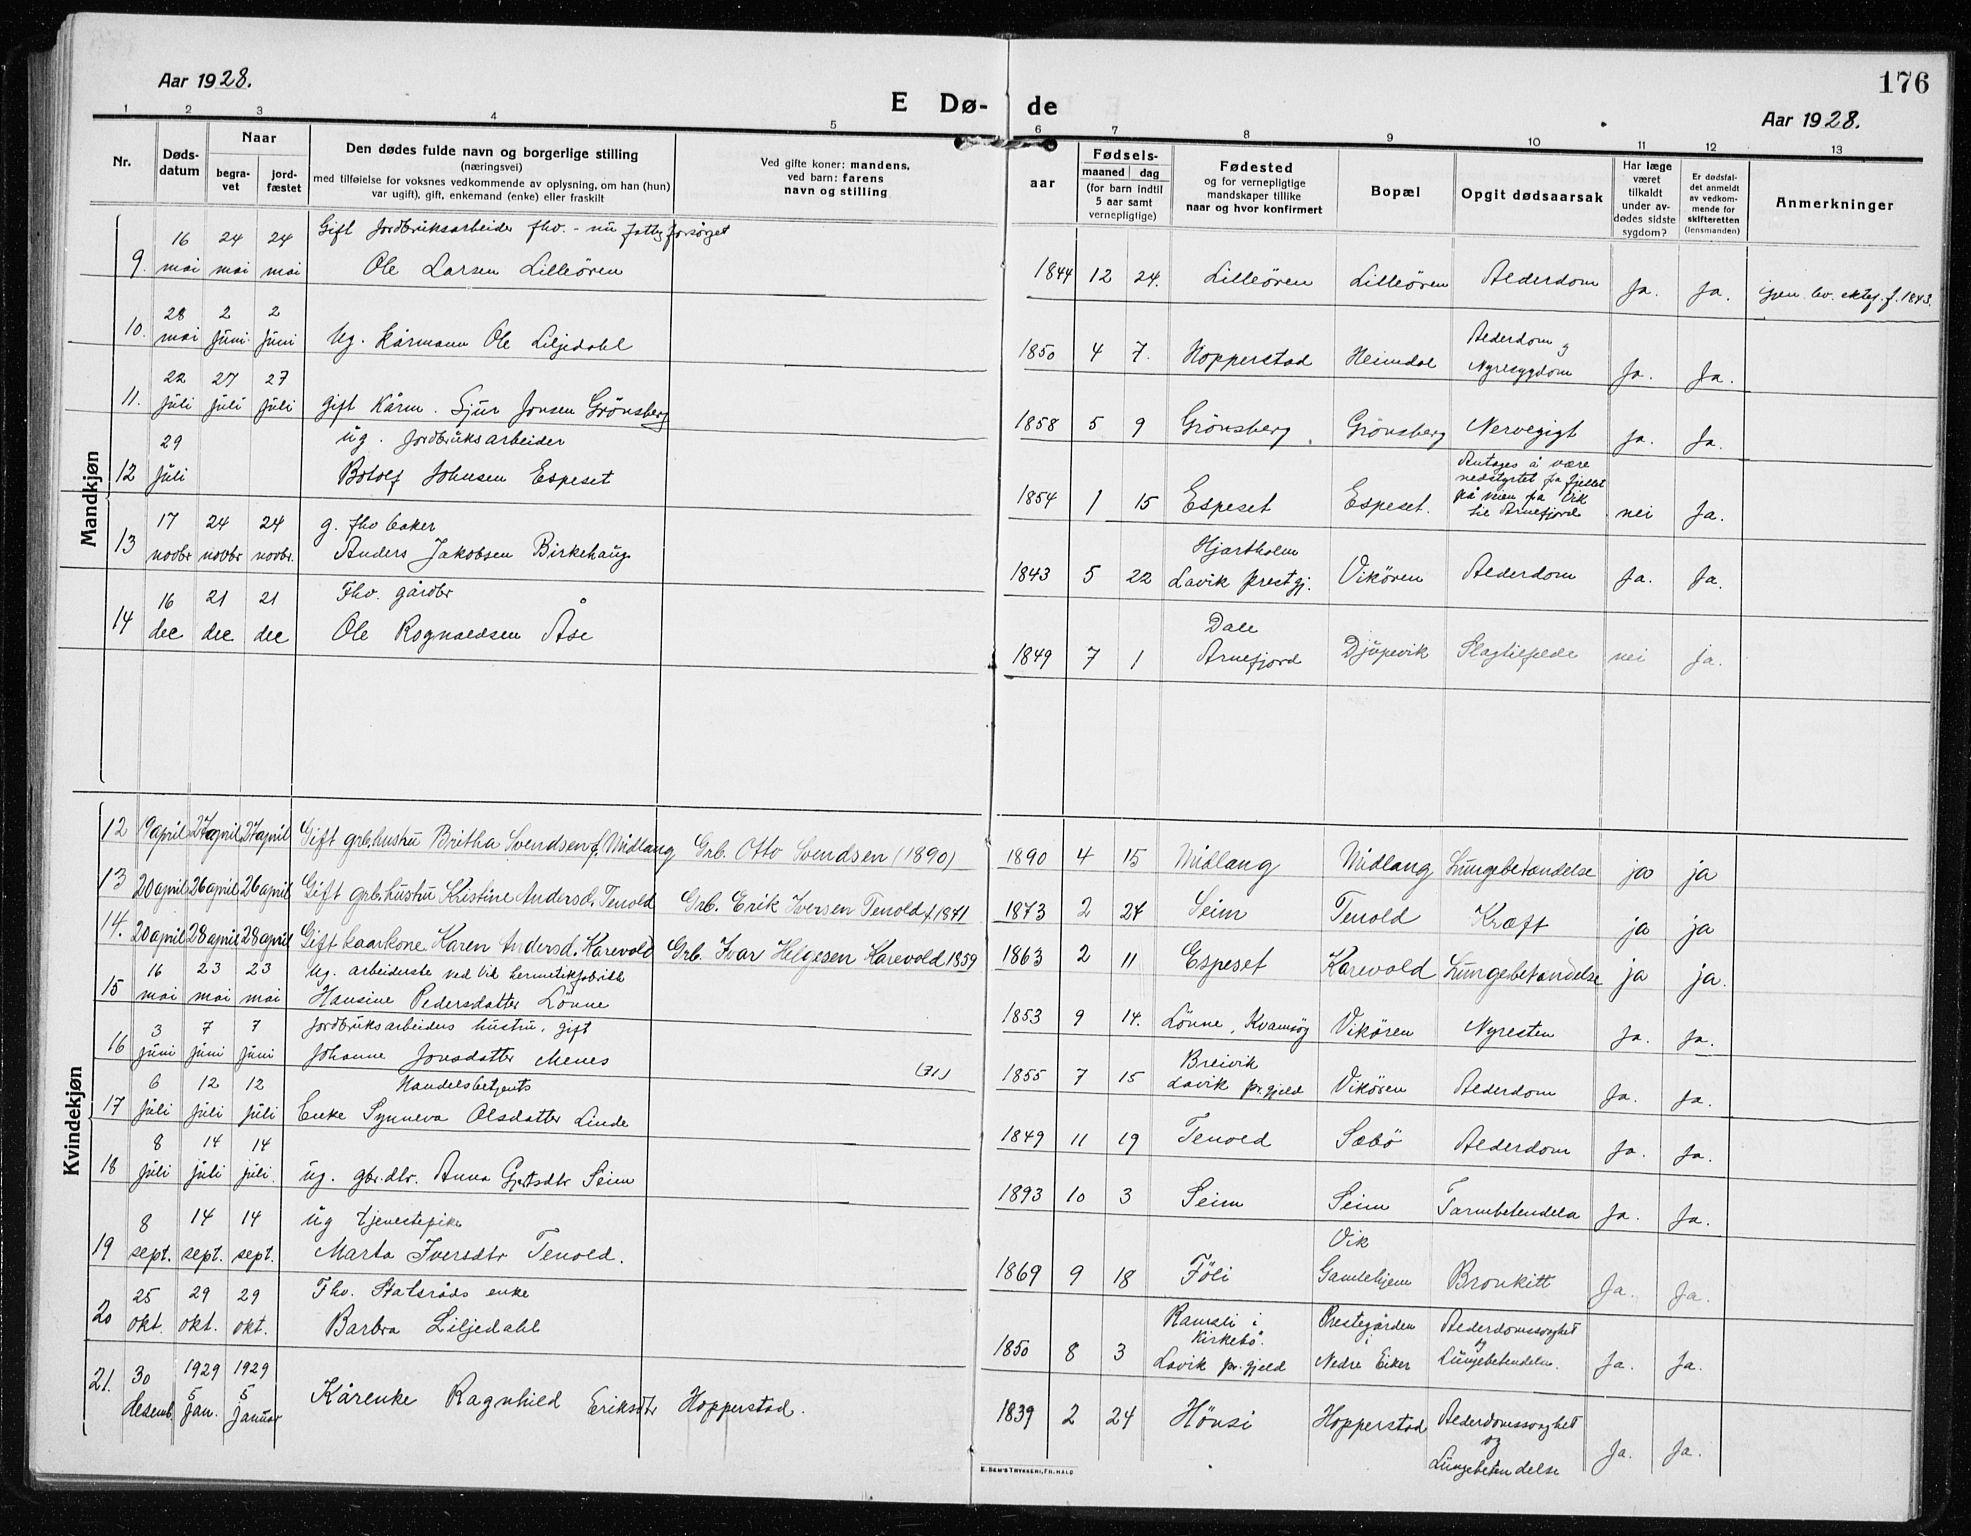 Aar 1928.
E Dø-
de
176
Aar 1928.
1 2 3 4 5 6 7 8 9 10 11 12 13
Nr.
Døds-
datum
Naar
begra-
vet
jord-
fæstet
Den dødes fulde navn og borgerlige stilling
(næringsvei)
med tilføielse for voksnes vedkommende av oplysning, om han (hun)
var ugift), gift, enkemand (enke) eller fraskilt
Ved gifte koner: mandens,
ved barn: farens
navn og stilling
aar
Fødsels-
maaned dag
(for barn indtil
5 aar samt
vernepligtige)
Fødested
og for vernepligtige
mandskaper tillike
naar og hvor konfirmert
Bopæl
Opgit dødsaarsak
Har læge
været
tilkaldt
under av-
dødes sidste
sygdom?
Er dødsfal-
det anmeldt
av vedkom-
mende for
skifteretten
(lensmanden)
Anmerkninger
Mandkjøn
16 24 24 Gift Jordbruksarbeider fhv. - nu fattigforsørget
9. mai mai mai Ole Larsen Lilleören 1844 12 24. Lilleören Lilleören Alderdom Ja. Ja. igjen lev. ekteg. f. 1843.
28 2 2 Alderdom og
10. mai juni juni Ug. kårmann Ole Liljedahl 1850 4 7. Hopperstad Heimdal Nyresygdom Ja. Ja.
22 27 27
11. juli juli juli gift kårm. Sjur Jonsen Grönsberg 1858 5 9 Grönsberg Grönsberg Nervegigt Ja. Ja.
29 ug. Jordbruksarbeider Antages å være
nedstyrtet fra fjellet
12 juli Botolf Johnsen Espeset 1854 1 15 Espeset Espeset. på veien fra Vik
til Arnefjord nei Ja.
17 24 24 g. fhv baker Hjartholm
13 novbr novbr novbr. Anders Jakobsen Birkehaug 1843 5 22 Lavik prestgj. Vikören Alderdom Ja. Ja.
16 21 21 Fhv. gårdbr Dale
14 dec dec dec Ole Rognaldsen Åse 1849 7 1 Arnefjord Djupevik Slagtilfelde nei ja.
Kvindekjøn
12 19 april 27 april 27 april Gift grb.hustru Britha Svendsen f. Midlang Grb. Otto Svendsen (1890) 1890 4 15 Midlang Midlang Lungebetændelse ja ja
13 20 april 26 april 26 april Gift grb.hustru Kristine Andersd. Tenold Grb. Erik Iversen Tenold f. 1871 1873 2 24 Seim Tenold Kræft ja ja
14. 20 april 28 april 28 april Gift kaarkone Karen Andersd. Karevold Grb. Ivar Helgesen Karevold 1859 1863 2 11 Espeset Karevold Lungebetændelse ja ja.
16 23 23 Ug. arbeiderske ved Vik hermetikfabrikk
15 mai mai mai Hansine Pedersdatter Lönne 1853 9 14. Lönne, Kvamsøy Vikören Nyresten Ja. Ja.
3 7 7 Jordbruksarbeiders hustru, gift Breivik
16 juni juni juni Johanne Jonsdatter Menes (71.) 1855 7 15 Lavik pr.gjeld Vikören Alderdom Ja. Ja.
6 12 12 Handelsbetjents
17 juli juli juli Enke Synneva Olsdatter Linde 1849 11 19 Tenold Sæbö Alderdom Ja. Ja.
8 14 14
18 juli juli juli. ug. gbr.dtr. Anna Gjertsdtr Seim 1893 10 3 Seim Seim Tarmbetendels Ja. Ja.
8 14 14 ug tjenestepike Vik
19 sept. sept. sept. Marta Iversdtr Tenold. 1869 9 18 Föli Gamlehjem Bronkitt Ja. Ja.
25 29 29 Fhv. Statsråds enke Ramsli i
Kirkebö Prestegården i Alderdomssvaghet og
20 okt. okt. okt. Barbra Liljedahl 1850 8 3 Lavik pr.gjeld Nedre Eiker Lungebetendels. Ja. Ja.
30 1929 1929
21. desemb 5 jan. 5 januar Kårenke Ragnhild Eriksdtr Hopperstad. 1839 2 24 Hönsi Hopperstad Alderdomssvaghet
og
Lungebetendelse Ja. Ja.
E. SEM'S TRYKKERI, FR.HALD